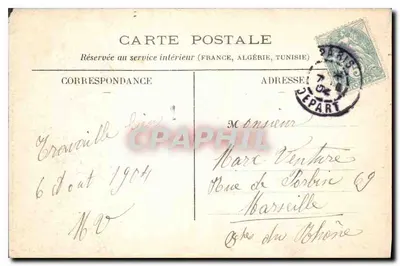 CARTE POSTALE
Réservée au service intérieur (FRANCE, ALGÉRIE, TUNISIE)
CORRESPONDANCE
ADRESSE
PARIS
DEPART
Trouville
6 Aout 1904
MV
Monsieur
Marc Venture
Rue de 69
Marseille
du Rhône
CPAPHIL